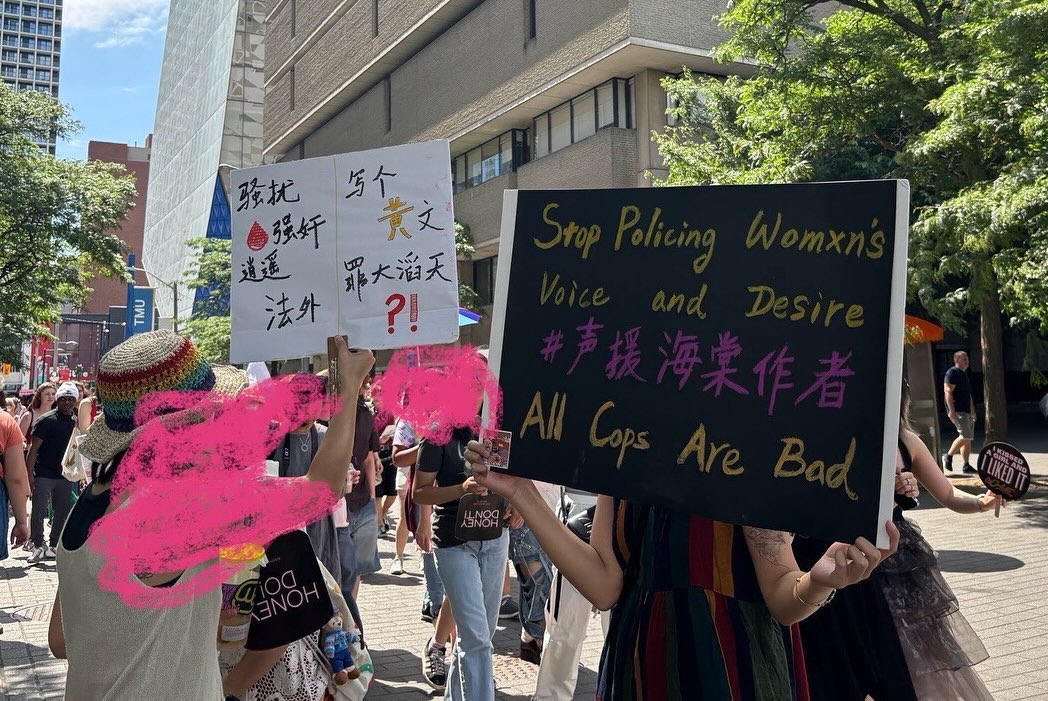 骚扰
强奸
逍遥
法外
写个
黄文
罪大滔天
?!
Stop Policing Womxn's
Voice and Desire
#声援海棠作者
All Cops Are Bad
TMU
HONEY
DON'T!
HONEY
DON'T!
I KISSED
A GIRL AND
I LIKED IT